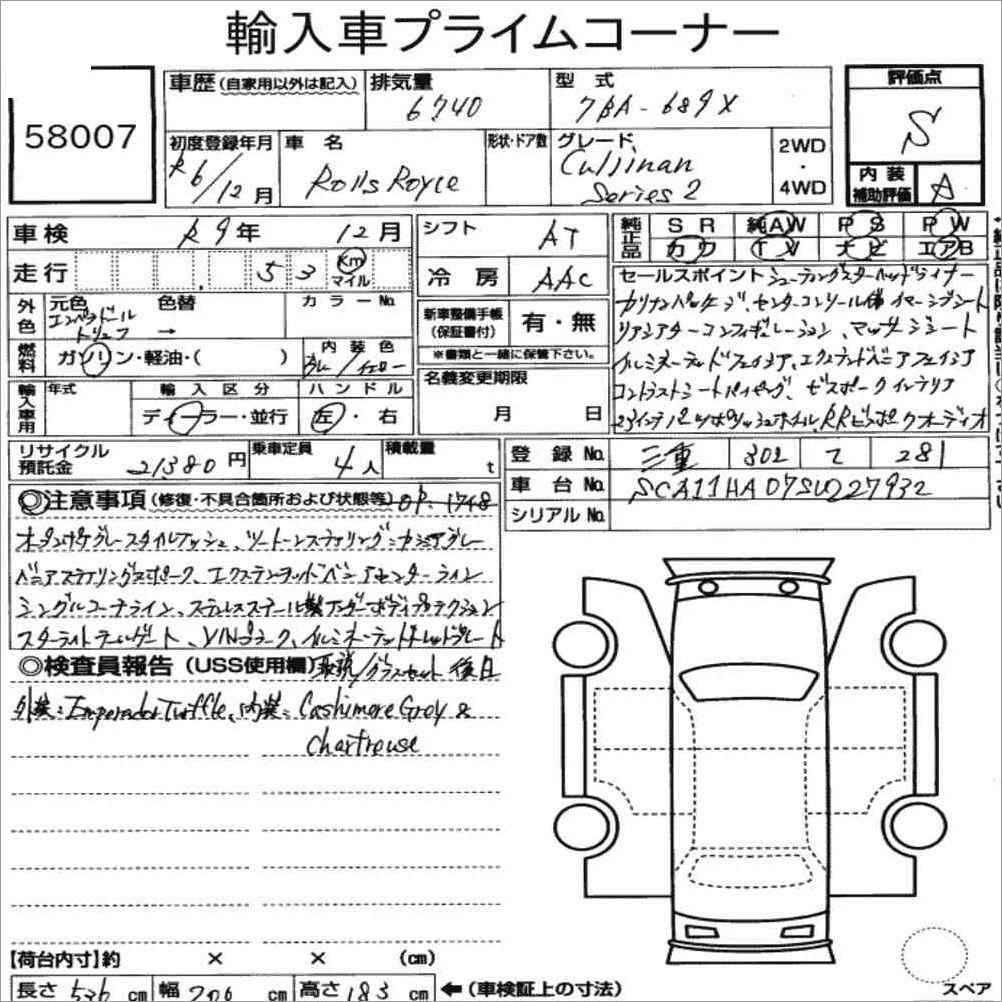 輸入車プライムコーナー
58007
車歴(自家用以外は記入)
排気量
6740
型式
7BA-689X
評価点
S
初度登録年月
R6/12月
車名
Rolls Royce
形状・ドア数
グレード
Cullinan
Series2
2WD
・
4WD
内装
補助評価
A
車検 R9年 12月
走行 53 Km
マイル
シフト AT
冷房 AAC
純正品
SR 純AW PS PW
カワ TV ナビ エアB
外色
元色 色替 カラーNo.
エンペラドール
トリュフ →
燃料
ガソリン・軽油・( )
内装色
グレー/イエロー
新車整備手帳
(保証書付)
有・無
※書類と一緒に保管下さい。
名義変更期限
月 日
セールスポイント シューティングスターヘッドライナー
カリナンパッケージ、センターコンソール付 イマーシブシート
リアシアターコンフィギュレーション、マッサージシート
イルミネーテッドフェイシア、エクステンドベニアフェイシア
コントラストシートパイピング、ビスポークインテリア
23インチパーツポリッシュホイル、RRビスポークオーディオ
輸入車用
年式
輸入区分
ディーラー・並行
ハンドル
左・右
リサイクル
預託金
21,380円
乗車定員
4人
積載量
t
登録No. 三重 302 て 281
車台No. SCA11HA07SU227932
シリアルNo.
◎注意事項(修復・不具合箇所および状態等) OP. 1748
スタイルアッシュ、ツートーンステアリング:カシミアグレー
ベニアステアリングスポーク、エクステンデッドベニアセンターライン
シングルコーチライン、ステンレススチール製アンダーボディプロテクション
スターライトテールゲート、VINプラーク、イルミネーテッドトレッドプレート
◎検査員報告(USS使用欄) 取説/グラスセット後日
外装:Emperador Truffle、内装:Cashmere Grey &
Chartreuse
【荷台内寸】約 × × (cm)
長さ 536 cm 幅 206 cm 高さ 183 cm ←(車検証上の寸法)
スペア